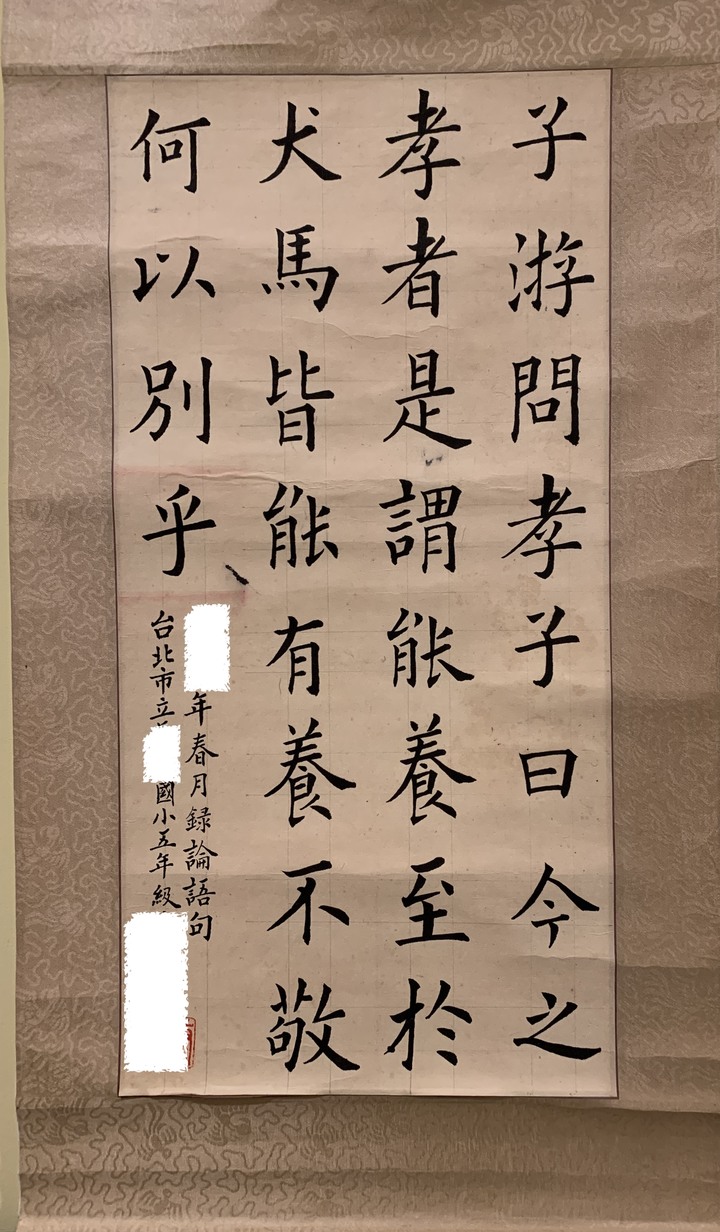 子游問孝子曰今之
孝者是謂能養至於
犬馬皆能有養不敬
何以別乎
年春月録論語句
台北市立
國小五年級